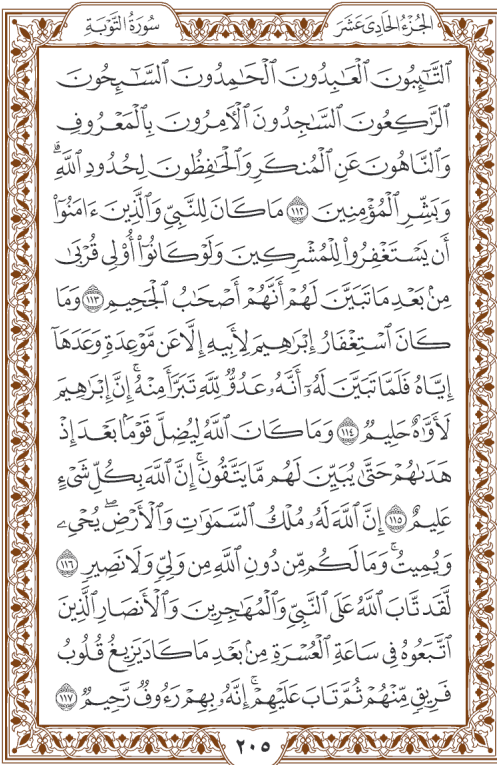 الجُزْءُ الحَادِى عَشَرَ
سُورَةُ التَّوْبَةِ
ٱلتَّٰٓئِبُونَ ٱلْعَٰبِدُونَ ٱلْحَٰمِدُونَ ٱلسَّٰٓئِحُونَ
ٱلرَّٰكِعُونَ ٱلسَّٰجِدُونَ ٱلْءَامِرُونَ بِٱلْمَعْرُوفِ
وَٱلنَّاهُونَ عَنِ ٱلْمُنكَرِ وَٱلْحَٰفِظُونَ لِحُدُودِ ٱللَّهِۗ
وَبَشِّرِ ٱلْمُؤْمِنِينَ ١١٢ مَا كَانَ لِلنَّبِيِّ وَٱلَّذِينَ ءَامَنُوٓا۟
أَن يَسْتَغْفِرُوا۟ لِلْمُشْرِكِينَ وَلَوْ كَانُوٓا۟ أُو۟لِى قُرْبَىٰ
مِنۢ بَعْدِ مَا تَبَيَّنَ لَهُمْ أَنَّهُمْ أَصْحَٰبُ ٱلْجَحِيمِ ١١٣ وَمَا
كَانَ ٱسْتِغْفَارُ إِبْرَٰهِيمَ لِأَبِيهِ إِلَّا عَن مَّوْعِدَةٍ وَعَدَهَآ
إِيَّاهُ فَلَمَّا تَبَيَّنَ لَهُۥٓ أَنَّهُۥ عَدُوٌّ لِّلَّهِ تَبَرَّأَ مِنْهُۚ إِنَّ إِبْرَٰهِيمَ
لَأَوَّٰهٌ حَلِيمٌ ١١٤ وَمَا كَانَ ٱللَّهُ لِيُضِلَّ قَوْمًۢا بَعْدَ إِذْ
هَدَىٰهُمْ حَتَّىٰ يُبَيِّنَ لَهُم مَّا يَتَّقُونَۚ إِنَّ ٱللَّهَ بِكُلِّ شَىْءٍ
عَلِيمٌ ١١٥ إِنَّ ٱللَّهَ لَهُۥ مُلْكُ ٱلسَّمَٰوَٰتِ وَٱلْأَرْضِۖ يُحْىِۦ
وَيُمِيتُۚ وَمَا لَكُم مِّن دُونِ ٱللَّهِ مِن وَلِىٍّ وَلَا نَصِيرٍ ١١٦
لَّقَد تَّابَ ٱللَّهُ عَلَى ٱلنَّبِىِّ وَٱلْمُهَٰجِرِينَ وَٱلْأَنصَارِ ٱلَّذِينَ
ٱتَّبَعُوهُ فِى سَاعَةِ ٱلْعُسْرَةِ مِنۢ بَعْدِ مَا كَادَ يَزِيغُ قُلُوبُ
فَرِيقٍ مِّنْهُمْ ثُمَّ تَابَ عَلَيْهِمْۚ إِنَّهُۥ بِهِمْ رَءُوفٌ رَّحِيمٌ ١١٧
٢٠٥